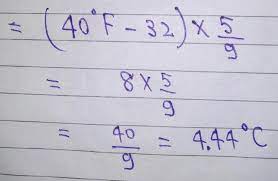 = (40°F - 32) × 5/9
= 8 × 5/9
= 40/9 = 4.44°C